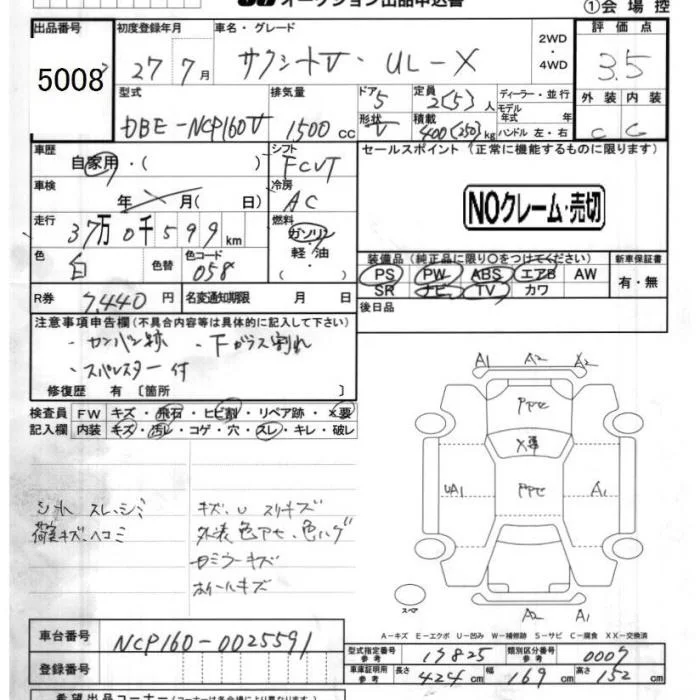 オークション出品申込書
①会場控
出品番号 初度登録年月 車名・グレード 2WD・4WD 評価点
5008 27 7月 サクシードV・UL-X 3.5
型式 排気量 ドア 定員 ディーラー・並行 外装 内装
5 2(5)人 モデル年式 年
DBE-NCP160V 1500cc 形状 V 積載 400(250)kg ハンドル 左・右 C C
車歴 シフト セールスポイント(正常に機能するものに限ります)
自家用・( ) FCVT
車検 冷房 NOクレーム・売切
年 月( 日) AC
走行 燃料
37万0千599km ガソリン・軽・油・( )
色 色替 色コード 装備品(純正品に限り○をつけてください) 新車保証書
白 058 PS PW ABS エアB AW 有・無
SR ナビ TV カワ
R券 7,440円 名変通知期限 月 日 後日品
注意事項申告欄(不具合内容等は具体的に記入して下さい)
・カンバン跡 ・下ガラス割れ
・スペアレスター付
修復歴 有 〔箇所 〕
検査員 FW キズ・飛石・ヒビ割・リペア跡・×要
記入欄 内装 キズ・汚レ・コゲ・穴・スレ・キレ・破レ
A1 A2 X2
PPセ
X要
UA1 PPセ A1
シート スレ、シミ キズ、U スリキズ
荷室キズ、ヘコミ 外装色アセ、色ハゲ
ミラーキズ
ホイールキズ
スペア
A2 A1
A―キズ E―エクボ U―凹み W―補修跡 S―サビ C―腐食 XX―交換済
車台番号 NCP160-0025591
型式指定番号 参考 17825 類別区分番号 参考 0007
登録番号
車庫証明用 参考 長さ 424cm 幅 169cm 高さ 152cm
希望出品コーナー